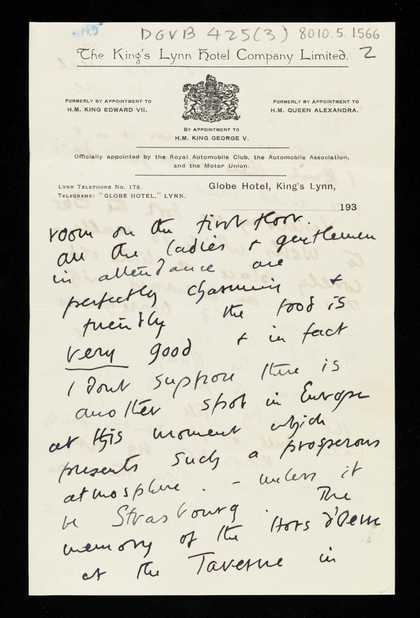 DGVB 425(3) 8010.5.1566
2
The King's Lynn Hotel Company Limited.
FORMERLY BY APPOINTMENT TO
H.M. KING EDWARD VII.
FORMERLY BY APPOINTMENT TO
H.M. QUEEN ALEXANDRA.
BY APPOINTMENT TO
H.M. KING GEORGE V.
Officially appointed by the Royal Automobile Club, the Automobile Association,
and the Motor Union.
LYNN TELEPHONE No. 178.
TELEGRAMS: "GLOBE HOTEL," LYNN.
Globe Hotel, King's Lynn,
193
room on the first floor.
all the ladies & gentlemen
in attendance are
perfectly charming &
friendly the food is
very good & in fact
I dont suppose there is
another spot in Europe
at this moment which
presents such a prosperous
atmosphere. - unless it
be Strasbourg. The
memory of the Hors d'Oeuvre
at the Taverne in